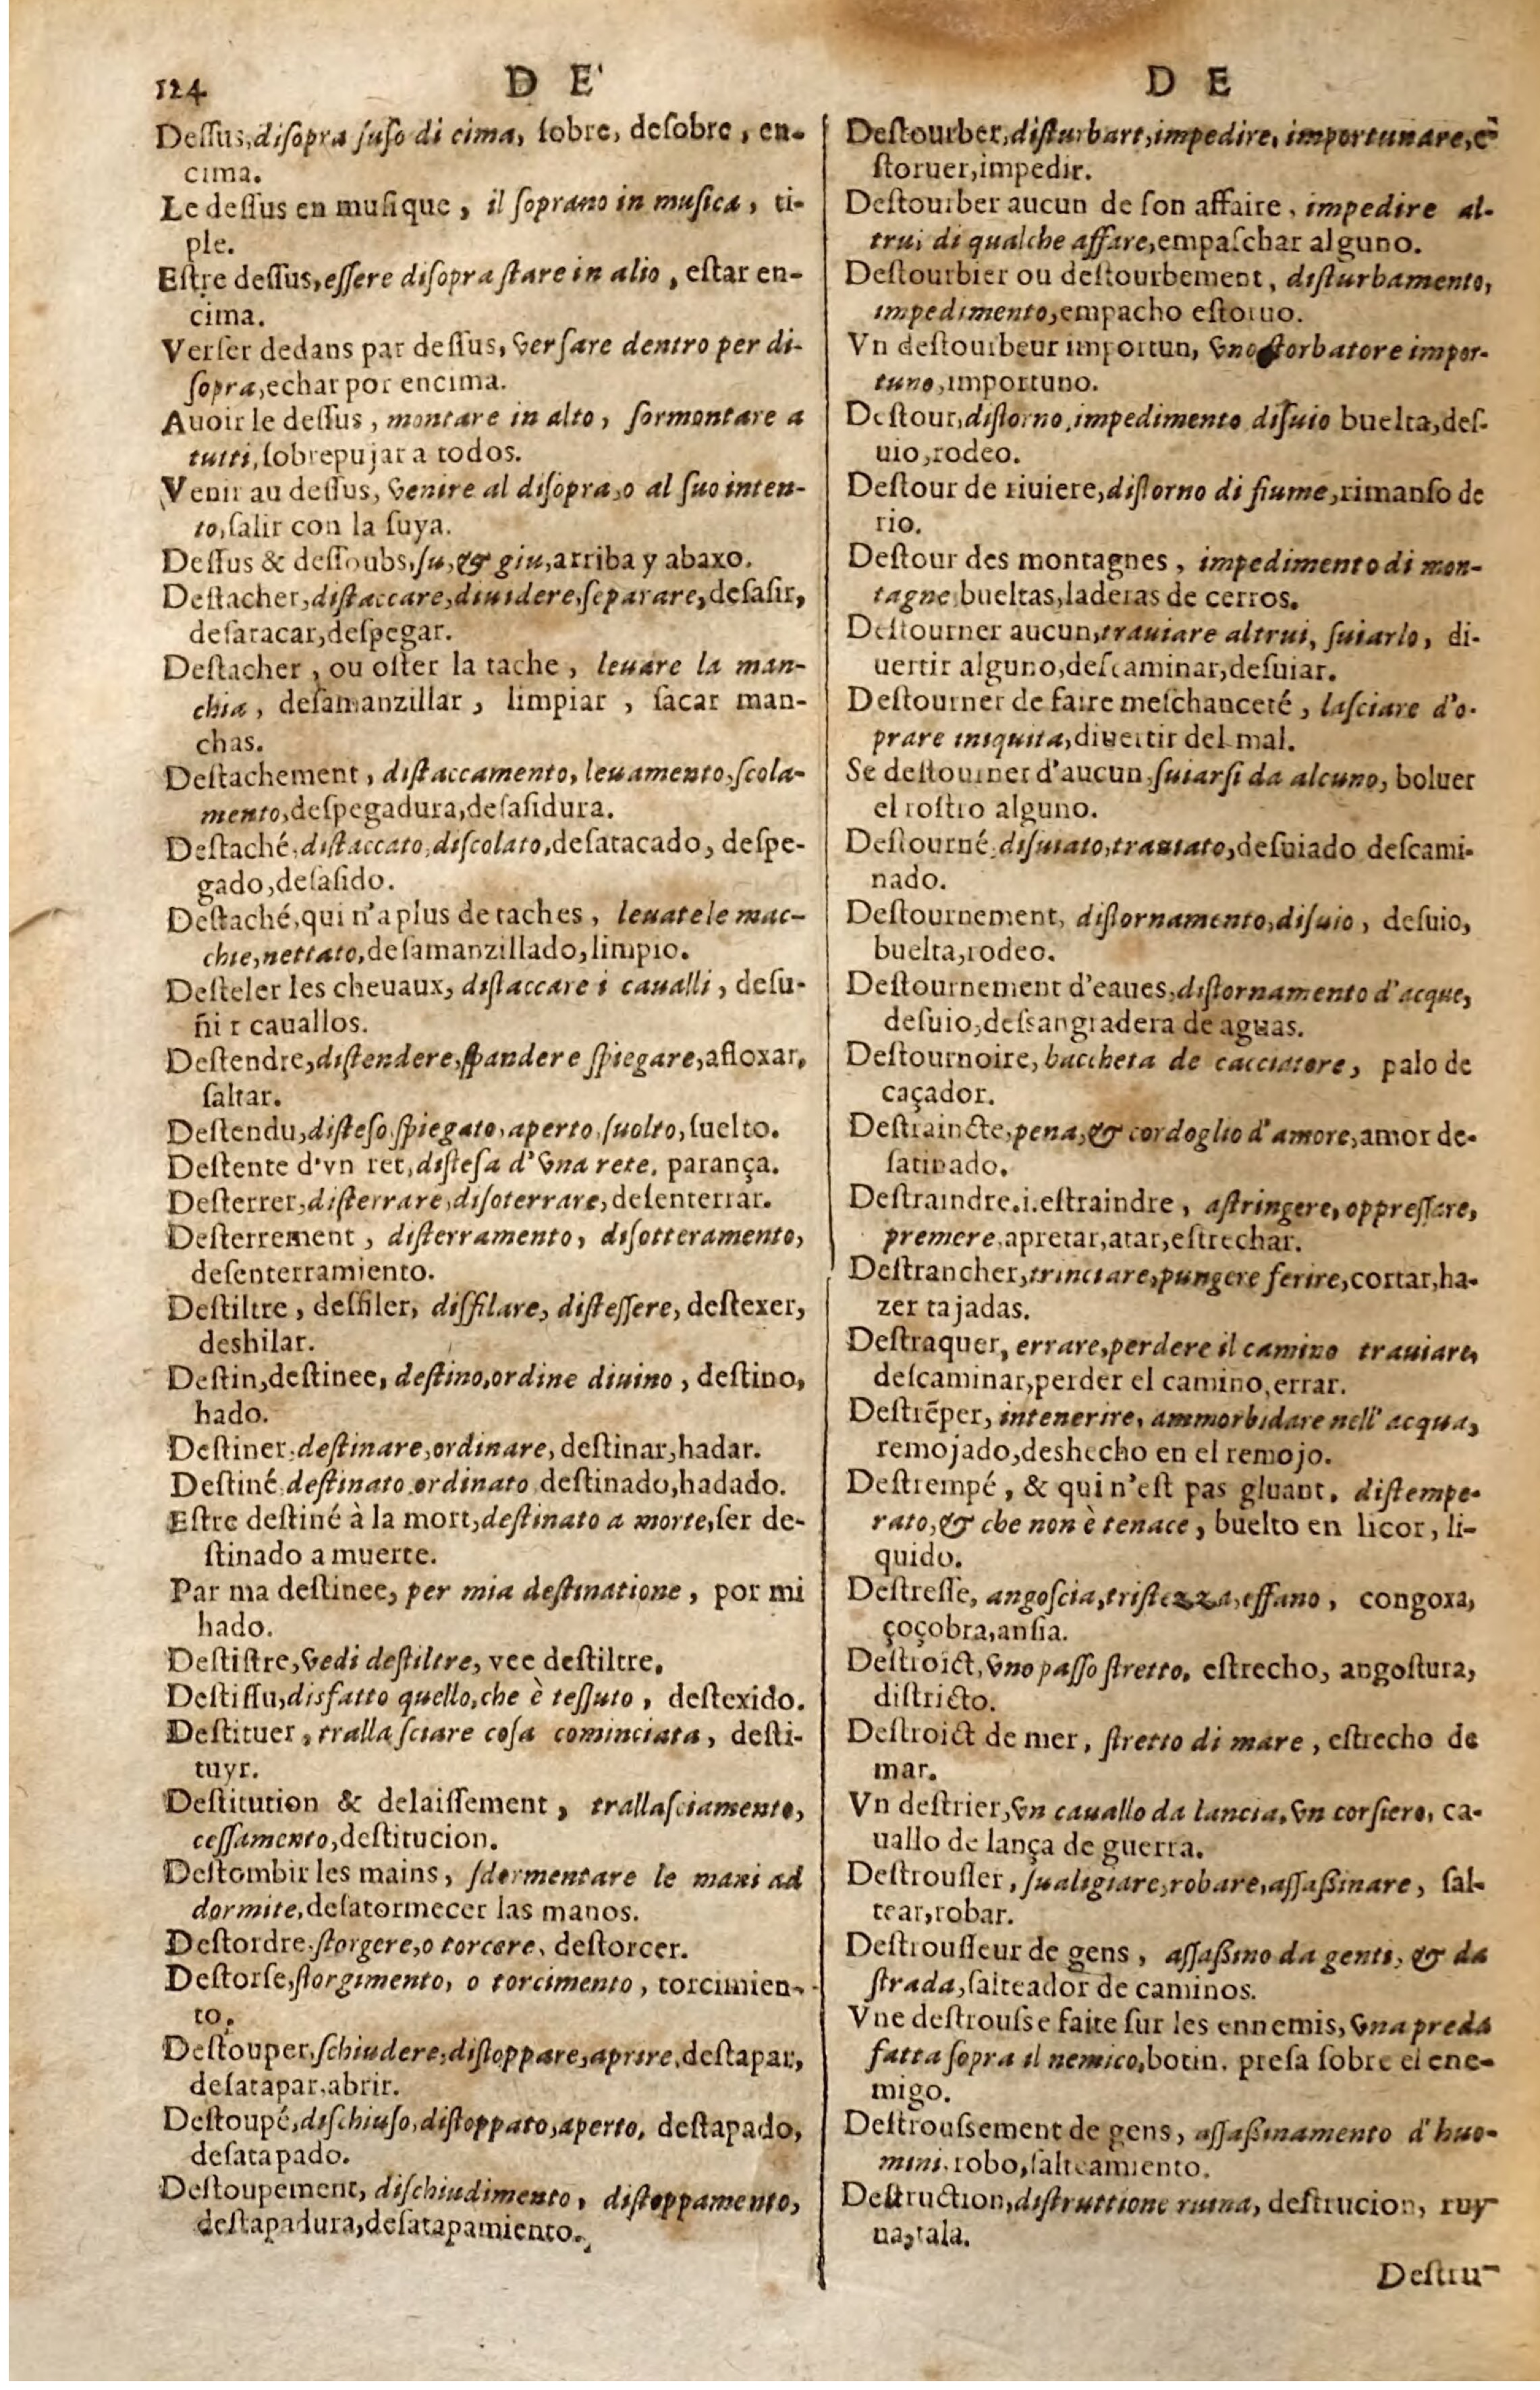 124
D E'
Deſſus, diſopra ſuſo di cima, ſobre, deſobre, en-
cima.
Le deſſus en muſique, il ſoprano in muſica, ti-
ple.
Eſtre deſſus, eſſere diſopra ſtare in alto, eſtar en-
cima.
Verſer dedans par deſſus, verſare dentro per di-
ſopra, echar por encima.
Auoir le deſſus, montare in alto, ſormontare a
tutti, ſobrepujar a todos.
Venir au deſſus, venire al diſopra, o al ſuo inten-
to, ſalir con la ſuya.
Deſſus & deſſoubs, ſu, & giu, arriba y abaxo.
Deſtacher, diſtaccare, diuidere, ſeparare, deſaſir,
deſatacar, deſpegar.
Deſtacher, ou oſter la tache, leuare la man-
chia, deſamanzillar, limpiar, ſacar man-
chas.
Deſtachement, diſtaccamento, leuamento, ſcola-
mento, deſpegadura, deſaſidura.
Deſtaché, diſtaccato, diſcolato, deſatacado, deſpe-
gado, deſaſido.
Deſtaché, qui n'a plus de taches, leuatele mac-
chie, nettato, deſamanzillado, limpio.
Deſteler les cheuaux, diſtaccare i caualli, deſu-
ñi r cauallos.
Deſtendre, diſtendere, ſpandere ſpiegare, afloxar,
ſaltar.
Deſtendu, diſteſo, ſpiegato, aperto, ſuolto, ſuelto.
Deſtente d'vn ret, diſteſa d'vna rete, parança.
Deſterrer, diſterrare, diſoterrare, deſenterrar.
Deſterrement, diſterramento, diſotteramento,
deſenterramiento.
Deſtiltre, deſfiler, diſfilare, diſteſſere, deſtexer,
deshilar.
Deſtin, deſtinee, deſtino, ordine diuino, deſtino,
hado.
Deſtiner, deſtinare, ordinare, deſtinar, hadar.
Deſtiné, deſtinato, ordinato, deſtinado, hadado.
Eſtre deſtiné à la mort, deſtinato a morte, ſer de-
ſtinado a muerte.
Par ma deſtinee, per mia deſtinatione, por mi
hado.
Deſtiſtre, vedi deſtiltre, vee deſtiltre.
Deſtiſſu, disfatto quello, che è teſſuto, deſtexido.
Deſtituer, trallaſciare coſa cominciata, deſti-
tuyr.
Deſtitution & delaiſſement, trallaſciamento,
ceſſamento, deſtitucion.
Deſtombir les mains, ſdormentare le mani ad
dormite, deſatormecer las manos.
Deſtordre, ſtorgere, o torcere, deſtorcer.
Deſtorſe, ſtorgimento, o torcimento, torcimien-
to.
Deſtouper, ſchiudere, diſtoppare, aprire, deſtapar,
deſatapar, abrir.
Deſtoupé, diſchiuſo, diſtoppato, aperto, deſtapado,
deſatapado.
Deſtoupement, diſchiudimento, diſtoppamento,
deſtapadura, deſatapamiento.
D E
Deſtourber, diſturbart, impedire, importunare, e~
ſtoruer, impedir.
Deſtourber aucun de ſon affaire, impedire al-
trui di qualche affare, empaſchar alguno.
Deſtourbier ou deſtourbement, diſturbamento,
impedimento, empacho eſtoruo.
Vn deſtourbeur importun, vno ſtorbatore impor-
tuno, importuno.
Deſtour, diſtorno, impedimento diſuio buelta, deſ-
uio, rodeo.
Deſtour de riuiere, diſtorno di fiume, rimanſo de
rio.
Deſtour des montagnes, impedimento di mon-
tagne, bueltas, laderas de cerros.
Deſtourner aucun, trauiare altrui, ſuiarlo, di-
uertir alguno, deſcaminar, deſuiar.
Deſtourner de faire meſchanceté, laſciare d'o-
prare iniquita, diuertir del mal.
Se deſtourner d'aucun, ſuiarſi da alcuno, boluer
el roſtro alguno.
Deſtourné, diſuiato, trauiato, deſuiado deſcami-
nado.
Deſtournement, diſtornamento, diſuio, deſuio,
buelta, rodeo.
Deſtournement d'eaues, diſtornamento d'acque,
deſuio, deſsangradera de aguas.
Deſtournoire, baccheta de cacciatore, palo de
caçador.
Deſtraincte, pena, & cordoglio d'amore, amor de-
ſatinado.
Deſtraindre. i. eſtraindre, aſtringere, oppreſſare,
premere, apretar, atar, eſtrechar.
Deſtrancher, trinciare, pungere ferire, cortar, ha-
zer tajadas.
Deſtraquer, errare, perdere il camino trauiare,
deſcaminar, perder el camino, errar.
Deſtrẽper, intenerire, ammorbidare nell' acqua,
remojado, deshecho en el remojo.
Deſtrempé, & qui n'eſt pas gluant, diſtempe-
rato, & che non è tenace, buelto en licor, li-
quido.
Deſtreſſe, angoſcia, triſtezza, effano, congoxa,
çoçobra, anſia.
Deſtroict, vno paſſo ſtretto, eſtrecho, angoſtura,
diſtricto.
Deſtroict de mer, ſtretto di mare, eſtrecho de
mar.
Vn deſtrier, vn cauallo da lancia, vn corſiero, ca-
uallo de lança de guerra.
Deſtrouſſer, ſualigiare, robare, aſſaßinare, ſal-
tear, robar.
Deſtrouſſeur de gens, aſſaßino da gente, & da
ſtrada, ſalteador de caminos.
Vne deſtrouſse faite ſur les ennemis, vna preda
fatta ſopra il nemico, botin, preſa ſobre el ene-
migo.
Deſtrouſsement de gens, aſſaßinamento d'huo-
mini, robo, ſalteamiento.
Deſtruction, diſtruttione ruina, deſtrucion, ruy-
na, tala.
Deſtru-